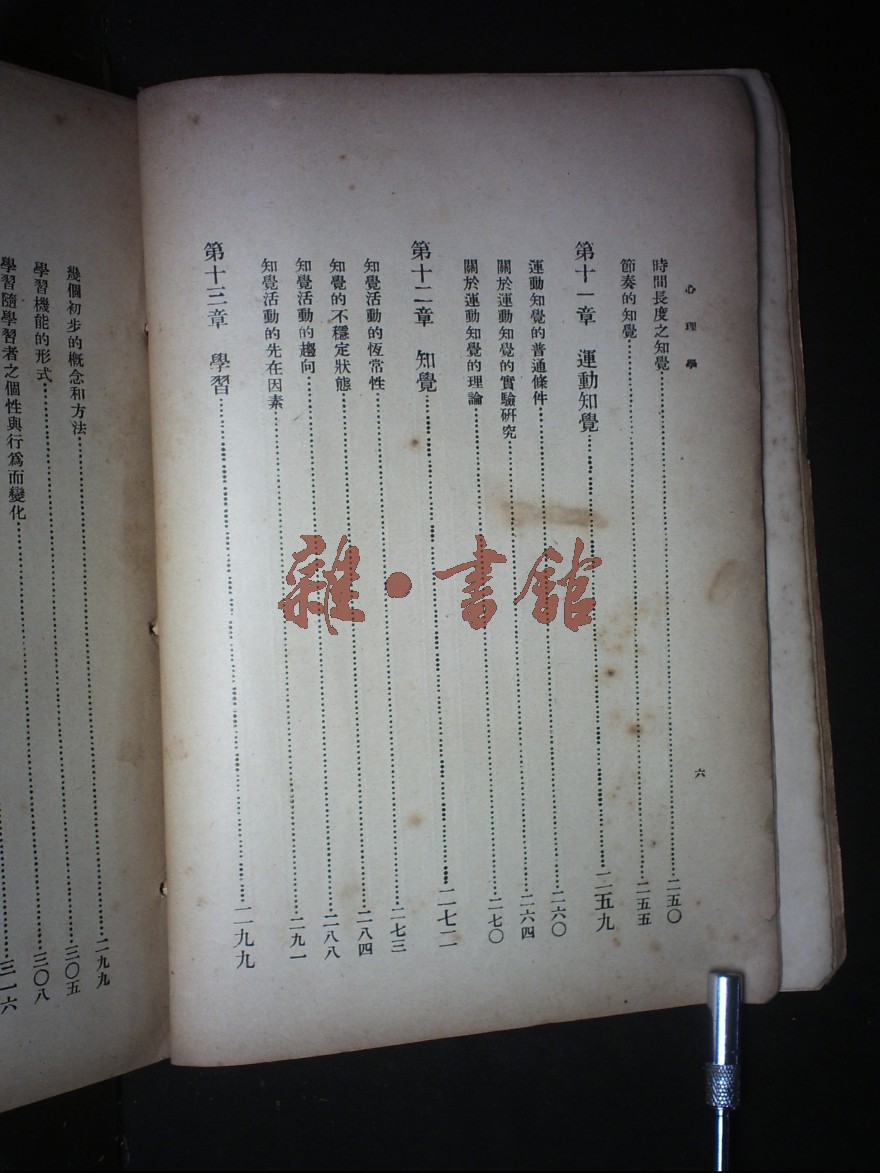 心理學
六
時間長度之知覺……二五〇
節奏的知覺……二五五
第十一章 運動知覺……二五九
運動知覺的普通條件……二六〇
關於運動知覺的實驗研究……二六四
關於運動知覺的理論……二七〇
第十二章 知覺……二七二
知覺活動的恆常性……二七三
知覺的不穩定狀態……二八四
知覺活動的趨向……二八八
知覺活動的先在因素……二九一
第十三章 學習……二九九
幾個初步的概念和方法……二九九
學習機能的形式……三〇五
……三〇八
學習隨學習者之個性與行爲而變化……三一六
雜·書館